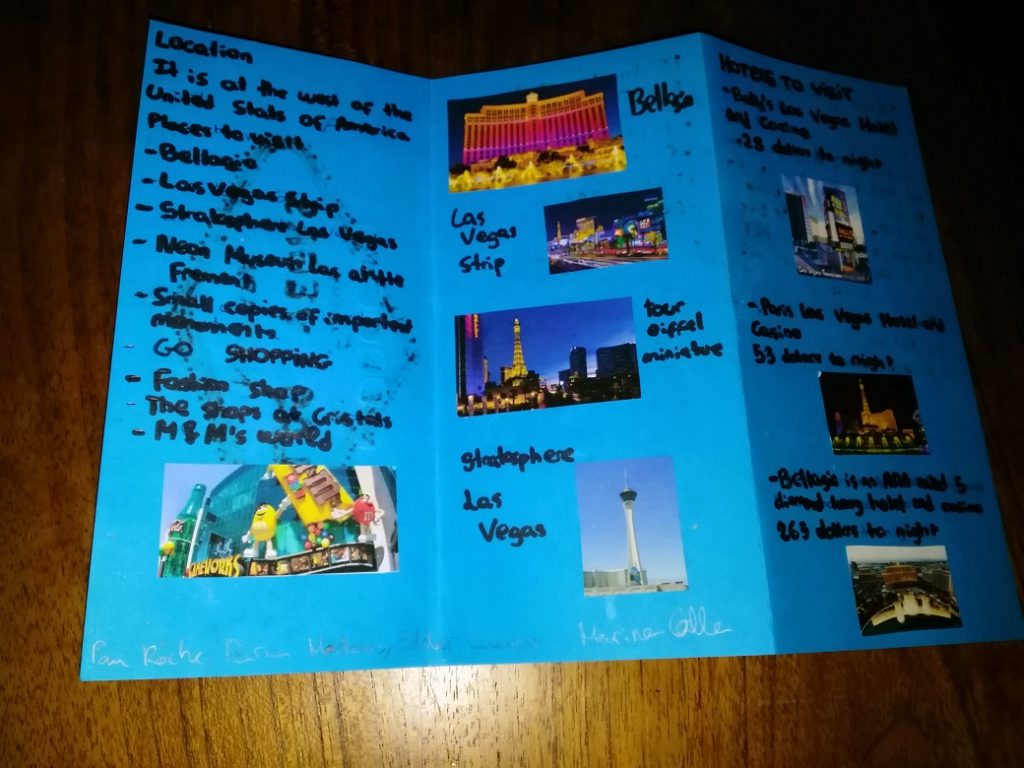 Location
It is at the west of the
United Stats of America
Places to visit
- Bellagio
- Las Vegas Strip
- Stratosphere Las Vegas
- Neon Museum Las
Fremont
- Small copies of
monuments
- GO SHOPPING
- Fashion Shop
- The shops at Cristals
- M & M's world
Bellagio
Las
Vegas
Strip
tour
eiffel
miniature
stratosphere
Las
Vegas
HOTELS TO VISIT
- Bally's Las Vegas Hotel
and Casino
28 dollars to night
- Paris Las Vegas Hotel and
Casino
53 dollars to night
- Bellagio is an AAA 5
hotel and casino
263 dollars to night
Marina